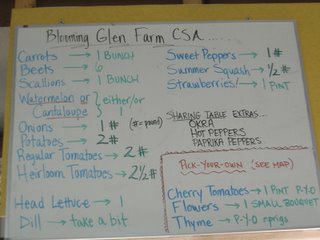 Blooming Glen Farm CSA.....
Carrots → 1 BUNCH
Beets → 6
Scallions → 1 BUNCH
Watermelon or Cantaloupe } either/or 1
Onions → 1 # (# = pound)
Potatoes → 2 #
Regular Tomatoes → 2 #
Heirloom Tomatoes → 2 1/2 #
Head Lettuce → 1
Dill → take a bit
Sweet Peppers → 1 #
Summer Squash → 1/2 #
Strawberries! → 1 PINT
SHARING TABLE EXTRAS...
OKRA
HOT PEPPERS
PAPRIKA PEPPERS
PICK-YOUR-OWN (SEE MAP)
Cherry Tomatoes → 1 PINT P-Y-O
Flowers → 1 SMALL BOUQUET
Thyme → P-Y-O sprigs